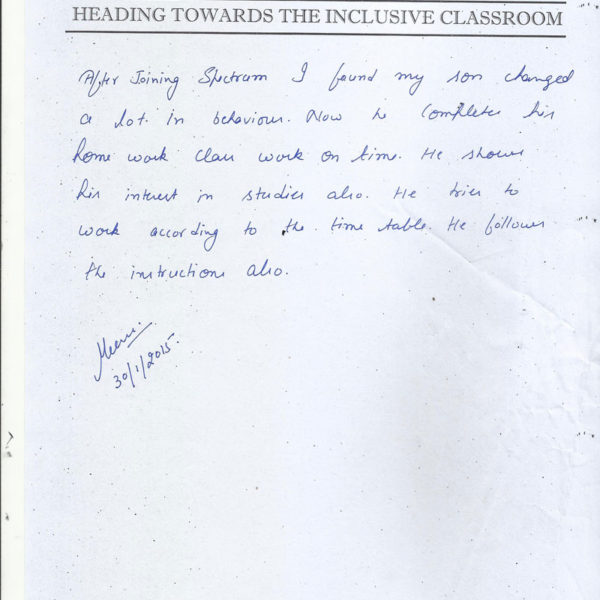 HEADING TOWARDS THE INCLUSIVE CLASSROOM
After Joining Spectrum I found my son changed
a lot in behaviour. Now he completes his
home work class work on time. He shows
his interest in studies also. He tries to
work according to the time table. He follows
the instructions also.
30/1/2015